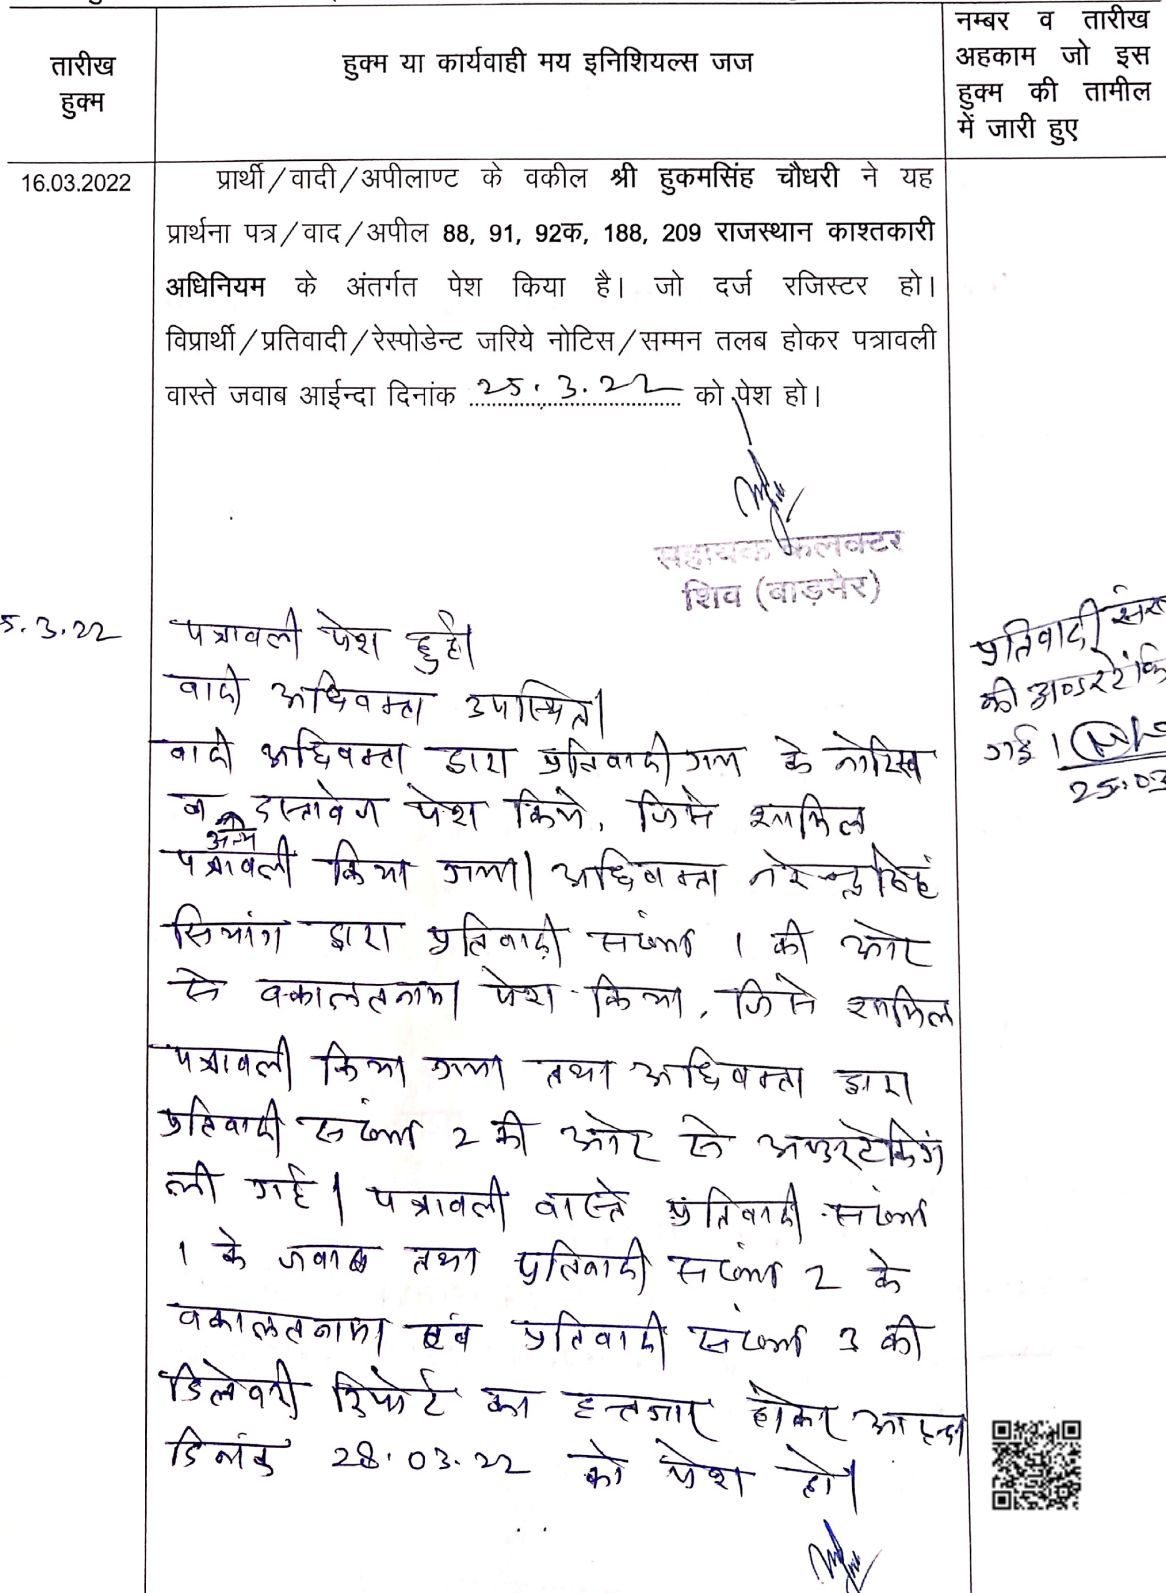 तारीख
हुक्म
हुक्म या कार्यवाही मय इनिशियल्स जज
नम्बर व तारीख
अहकाम जो इस
हुक्म की तामील
में जारी हुए
16.03.2022
प्रार्थी/वादी/अपीलाण्ट के वकील श्री हुकमसिंह चौधरी ने यह
प्रार्थना पत्र/वाद/अपील 88, 91, 92क, 188, 209 राजस्थान काश्तकारी
अधिनियम के अंतर्गत पेश किया है। जो दर्ज रजिस्टर हो।
विप्रार्थी/प्रतिवादी/रेस्पोडेन्ट जरिये नोटिस/सम्मन तलब होकर पत्रावली
वास्ते जवाब आईन्दा दिनांक 25.3.22 को पेश हो।
सहायक कलक्टर
शिव (बाड़मेर)
5.3.22
पत्रावली पेश हुई।
वादी अधिवक्ता उपस्थित।
वादी अधिवक्ता द्वारा प्रतिवादीगण के नोटिस
व अन्य दस्तावेज पेश किये, जिसे शामिल
पत्रावली किया गया। अधिवक्ता नरेन्द्रसिंह
सियांग द्वारा प्रतिवादी संख्या 1 की ओर
से वकालतनामा पेश किया, जिसे शामिल
पत्रावली किया गया तथा अधिवक्ता द्वारा
प्रतिवादी संख्या 2 की ओर से अण्डरटेकिंग
ली गई। पत्रावली वास्ते प्रतिवादी संख्या
1 के जवाब तथा प्रतिवादी संख्या 2 के
वकालतनामा एवं प्रतिवादी संख्या 3 की
डिलेवरी रिपोर्ट का इन्तजार होकर आइन्दा
दिनांक 28.03.22 को पेश हो।
प्रतिवादी
की अण्डरटेकि
गई।
25.03